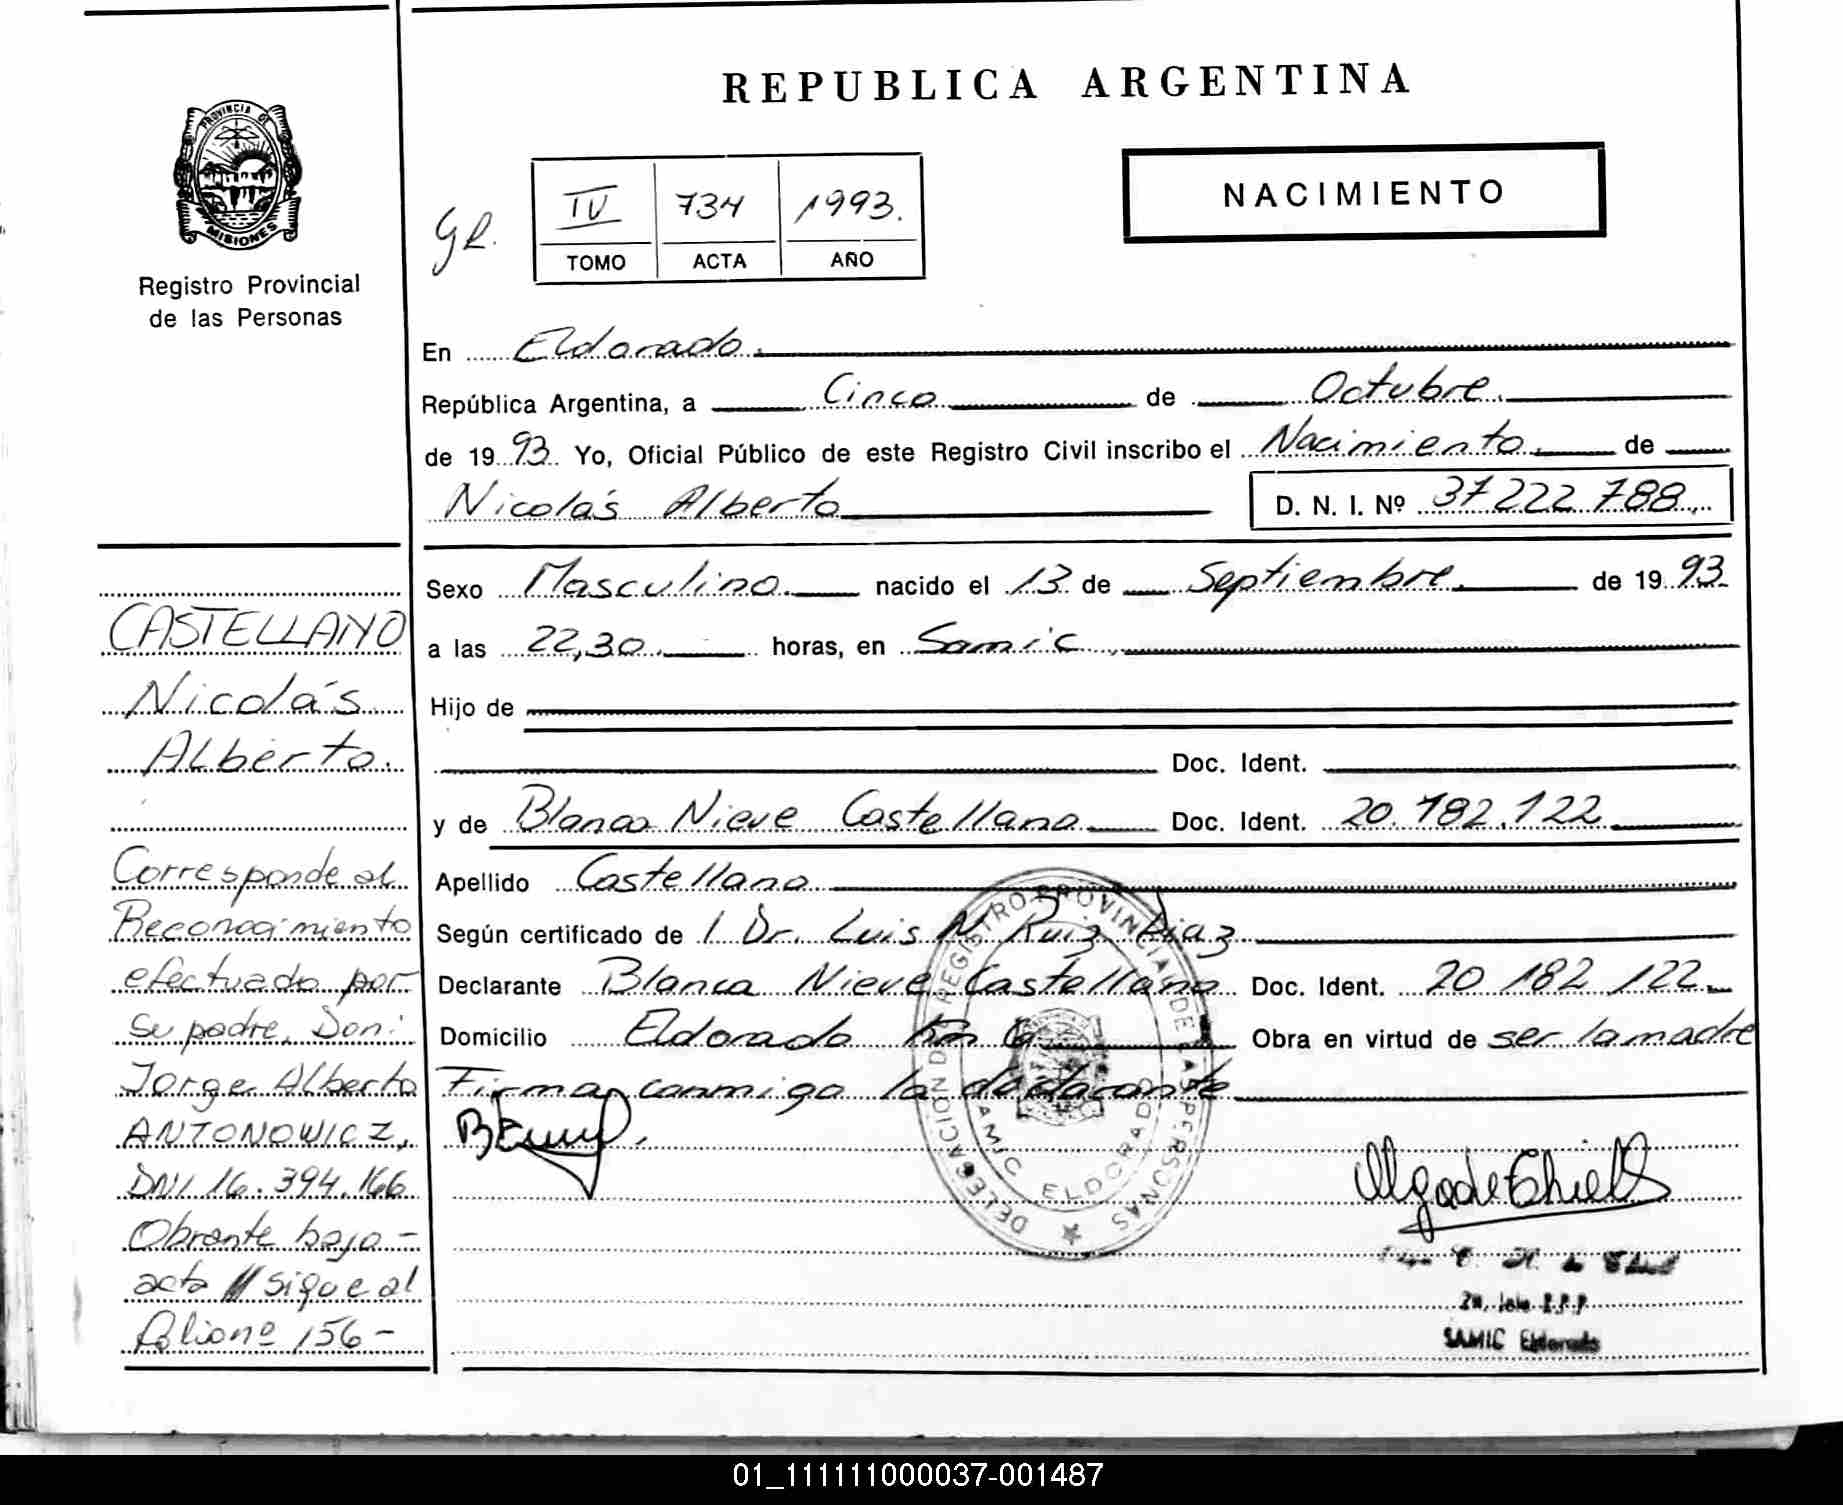 REPUBLICA ARGENTINA
PROVINCIA DE
MISIONES
Registro Provincial
de las Personas
NACIMIENTO
GR.
IV 734 1993.
TOMO ACTA AÑO
En Eldorado.
República Argentina, a Cinco de Octubre
de 1993. Yo, Oficial Público de este Registro Civil inscribo el Nacimiento de
Nicolás Alberto D. N. I. Nº 37 222 788
Sexo Masculino nacido el 13 de Septiembre. de 1993
a las 22,30 horas, en Samic
Hijo de
Doc. Ident.
y de Blanca Nieve Castellano Doc. Ident. 20.182.122
Apellido Castellano
Según certificado de / Dr. Luis N. Ruiz Diaz
Declarante Blanca Nieve Castellano Doc. Ident. 20 182 122
Domicilio Eldorado Km Obra en virtud de ser la madre
Firma conmigo la declarante
CASTELLANO
Nicolás
Alberto.
Corresponde al
Reconocimiento
efectuado por
su padre, Don:
Jorge Alberto
ANTONOWICZ,
DNI 16.394.166
Obrante bajo -
acta sigue al
folio nº 156 -
DELEGACION DE REGISTRO PROVINCIAL DE LAS PERSONAS
SAMIC ELDORADO
SAMIC Eldorado
01_111111000037-001487